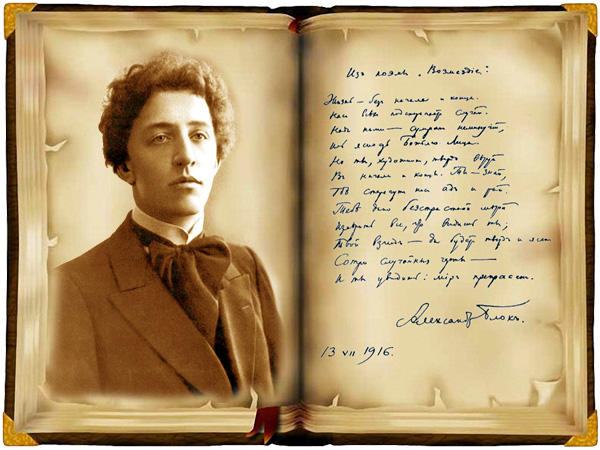 Изъ поэмы „Возмездіе":
Жизнь — безъ начала и конца.
Насъ всѣхъ подстерегаетъ случай.
Надъ нами — сумракъ неминучій,
Иль ясность Божьяго Лица.
Но ты, художникъ, твердо вѣруй
Въ начала и концы. Ты — знай,
Гдѣ стерегутъ насъ адъ и рай.
Тебѣ дано безстрастной мѣрой
Измѣрить все, что видишь ты;
Твой взглядъ — да будетъ твердъ и ясенъ.
Сотри случайныя черты —
И ты увидишь: міръ прекрасенъ.
Александръ Блокъ.
13 VII 1916.